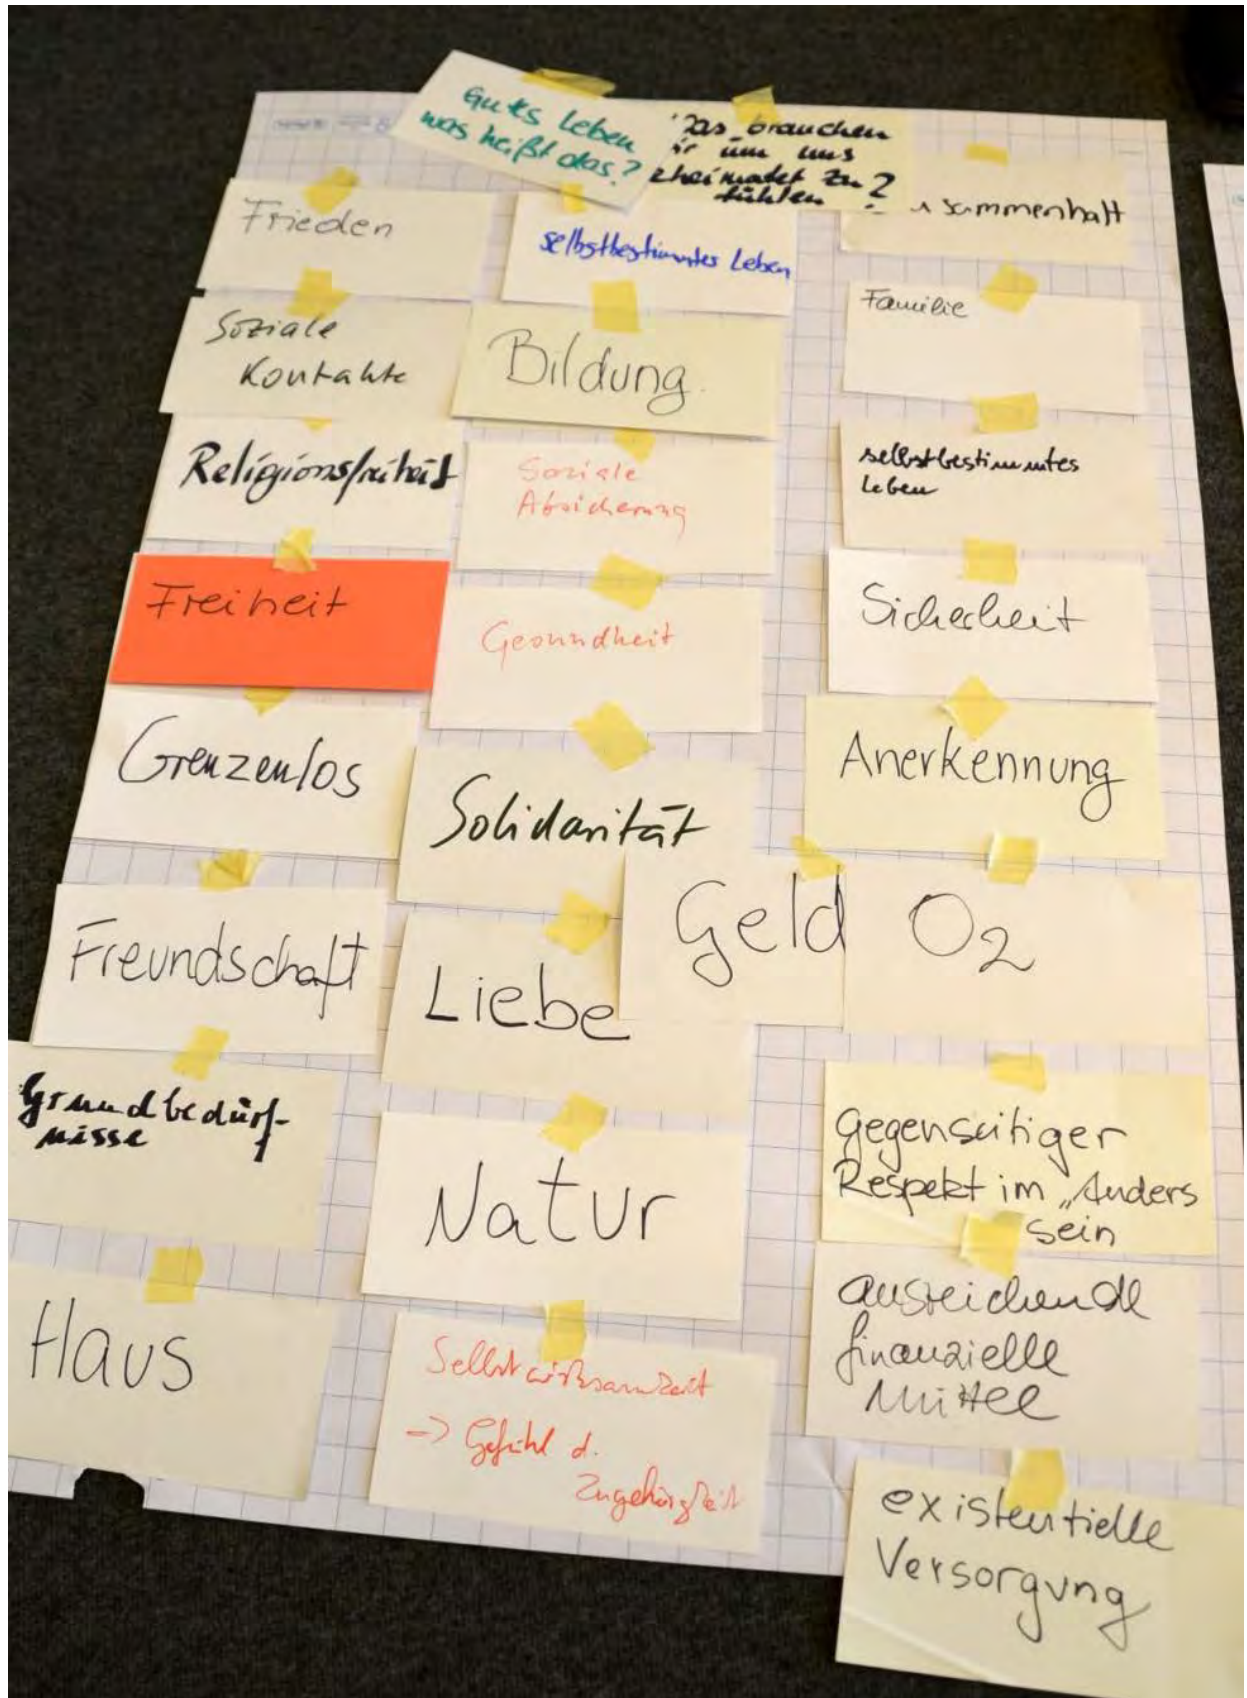 Gutes Leben
was heißt das?
Das brauchen
wir um uns
beheimatet zu
fühlen ?
Frieden
Soziale
Kontakte
Religionsfreiheit
Freiheit
Grenzenlos
Freundschaft
Grundbedürf-
nisse
Haus
selbstbestimmtes Leben
Bildung.
Soziale
Absicherung
Gesundheit
Solidarität
Liebe
Natur
Selbstwirksamkeit
-> Gefühl d.
Zugehörigkeit
sammenhalt
Familie
selbstbestimmtes
Leben
Sicherheit
Anerkennung
Geld
O2
gegenseitiger
Respekt im „Anders
sein
ausreichende
finanzielle
Mittel
existentielle
Versorgung